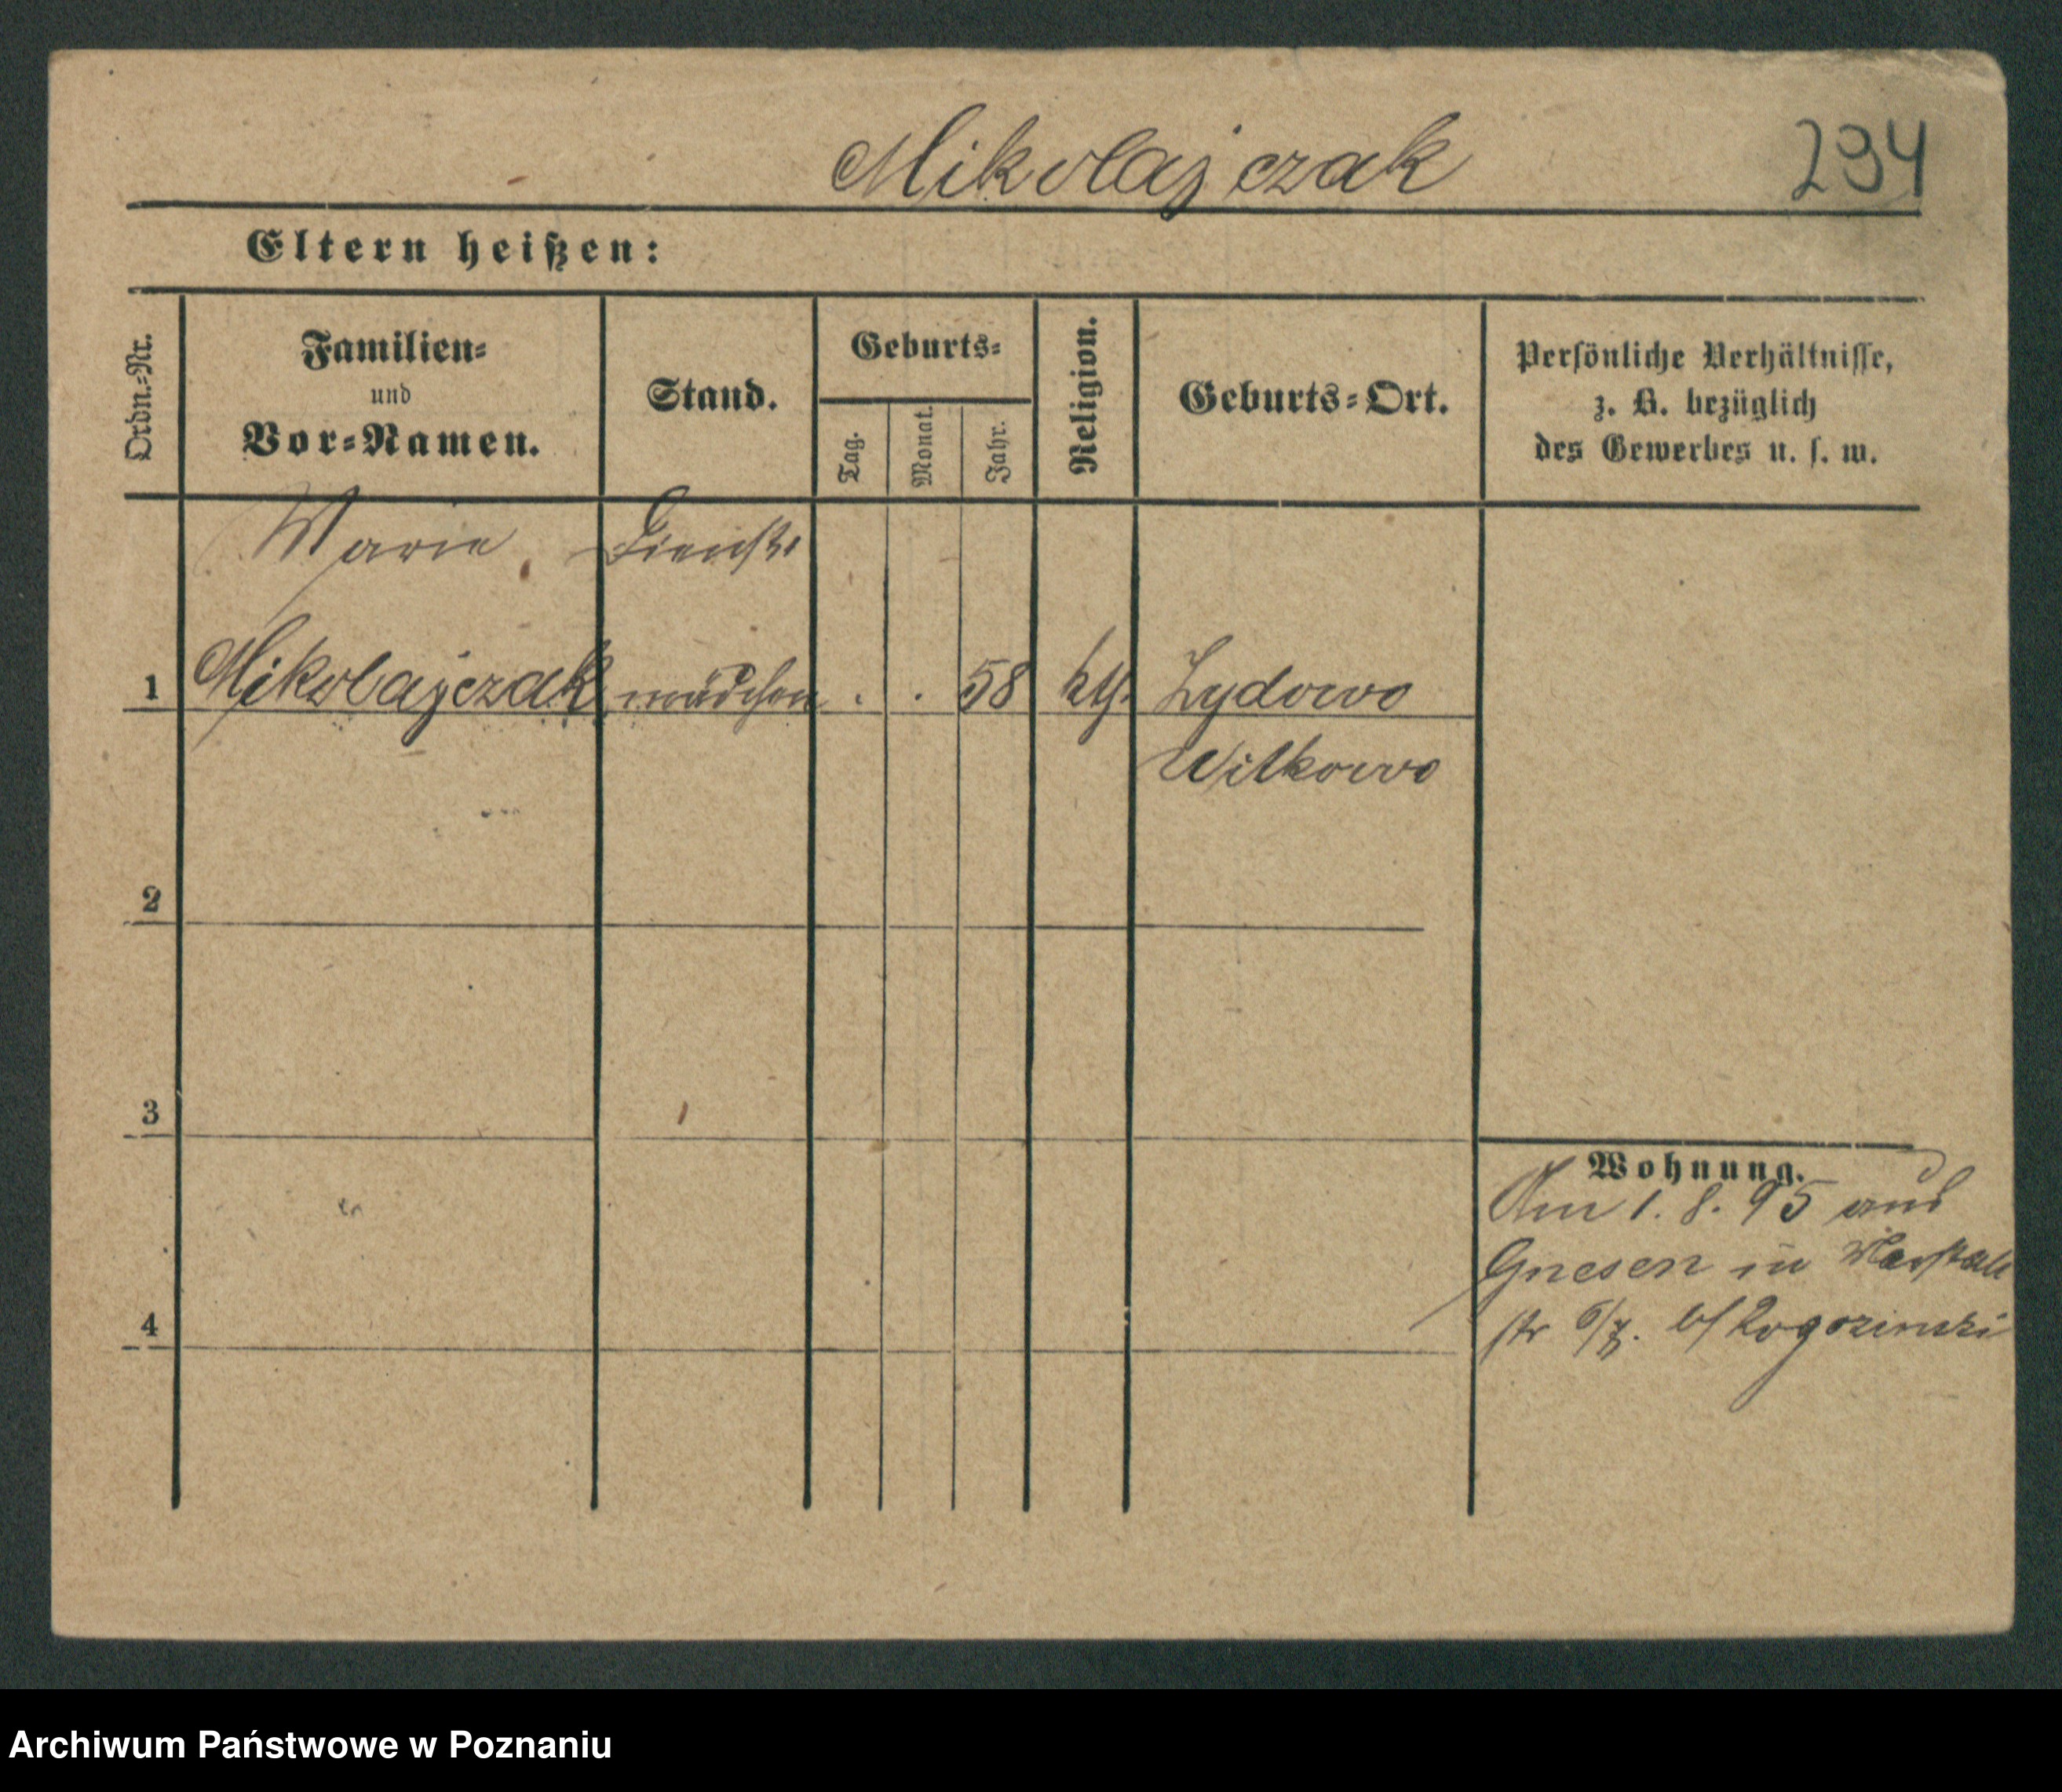 Mikolajczak 294
Eltern heißen:
Ordn.-Nr.
Familien-
und
Vor-Namen.
Stand.
Geburts-
Tag.
Monat.
Jahr.
Religion.
Geburts-Ort.
Persönliche Verhältnisse,
z. B. bezüglich
des Gewerbes u. s. w.
Marie Dienst-
1 Mikolajczak mädchen . . 58 kth. Zydowo
Witkowo
2
3
Wohnung.
Am 1. 8. 95 aus
Gnesen in Marstall
4 str 6/7. b/ Rogozinski
Archiwum Państwowe w Poznaniu